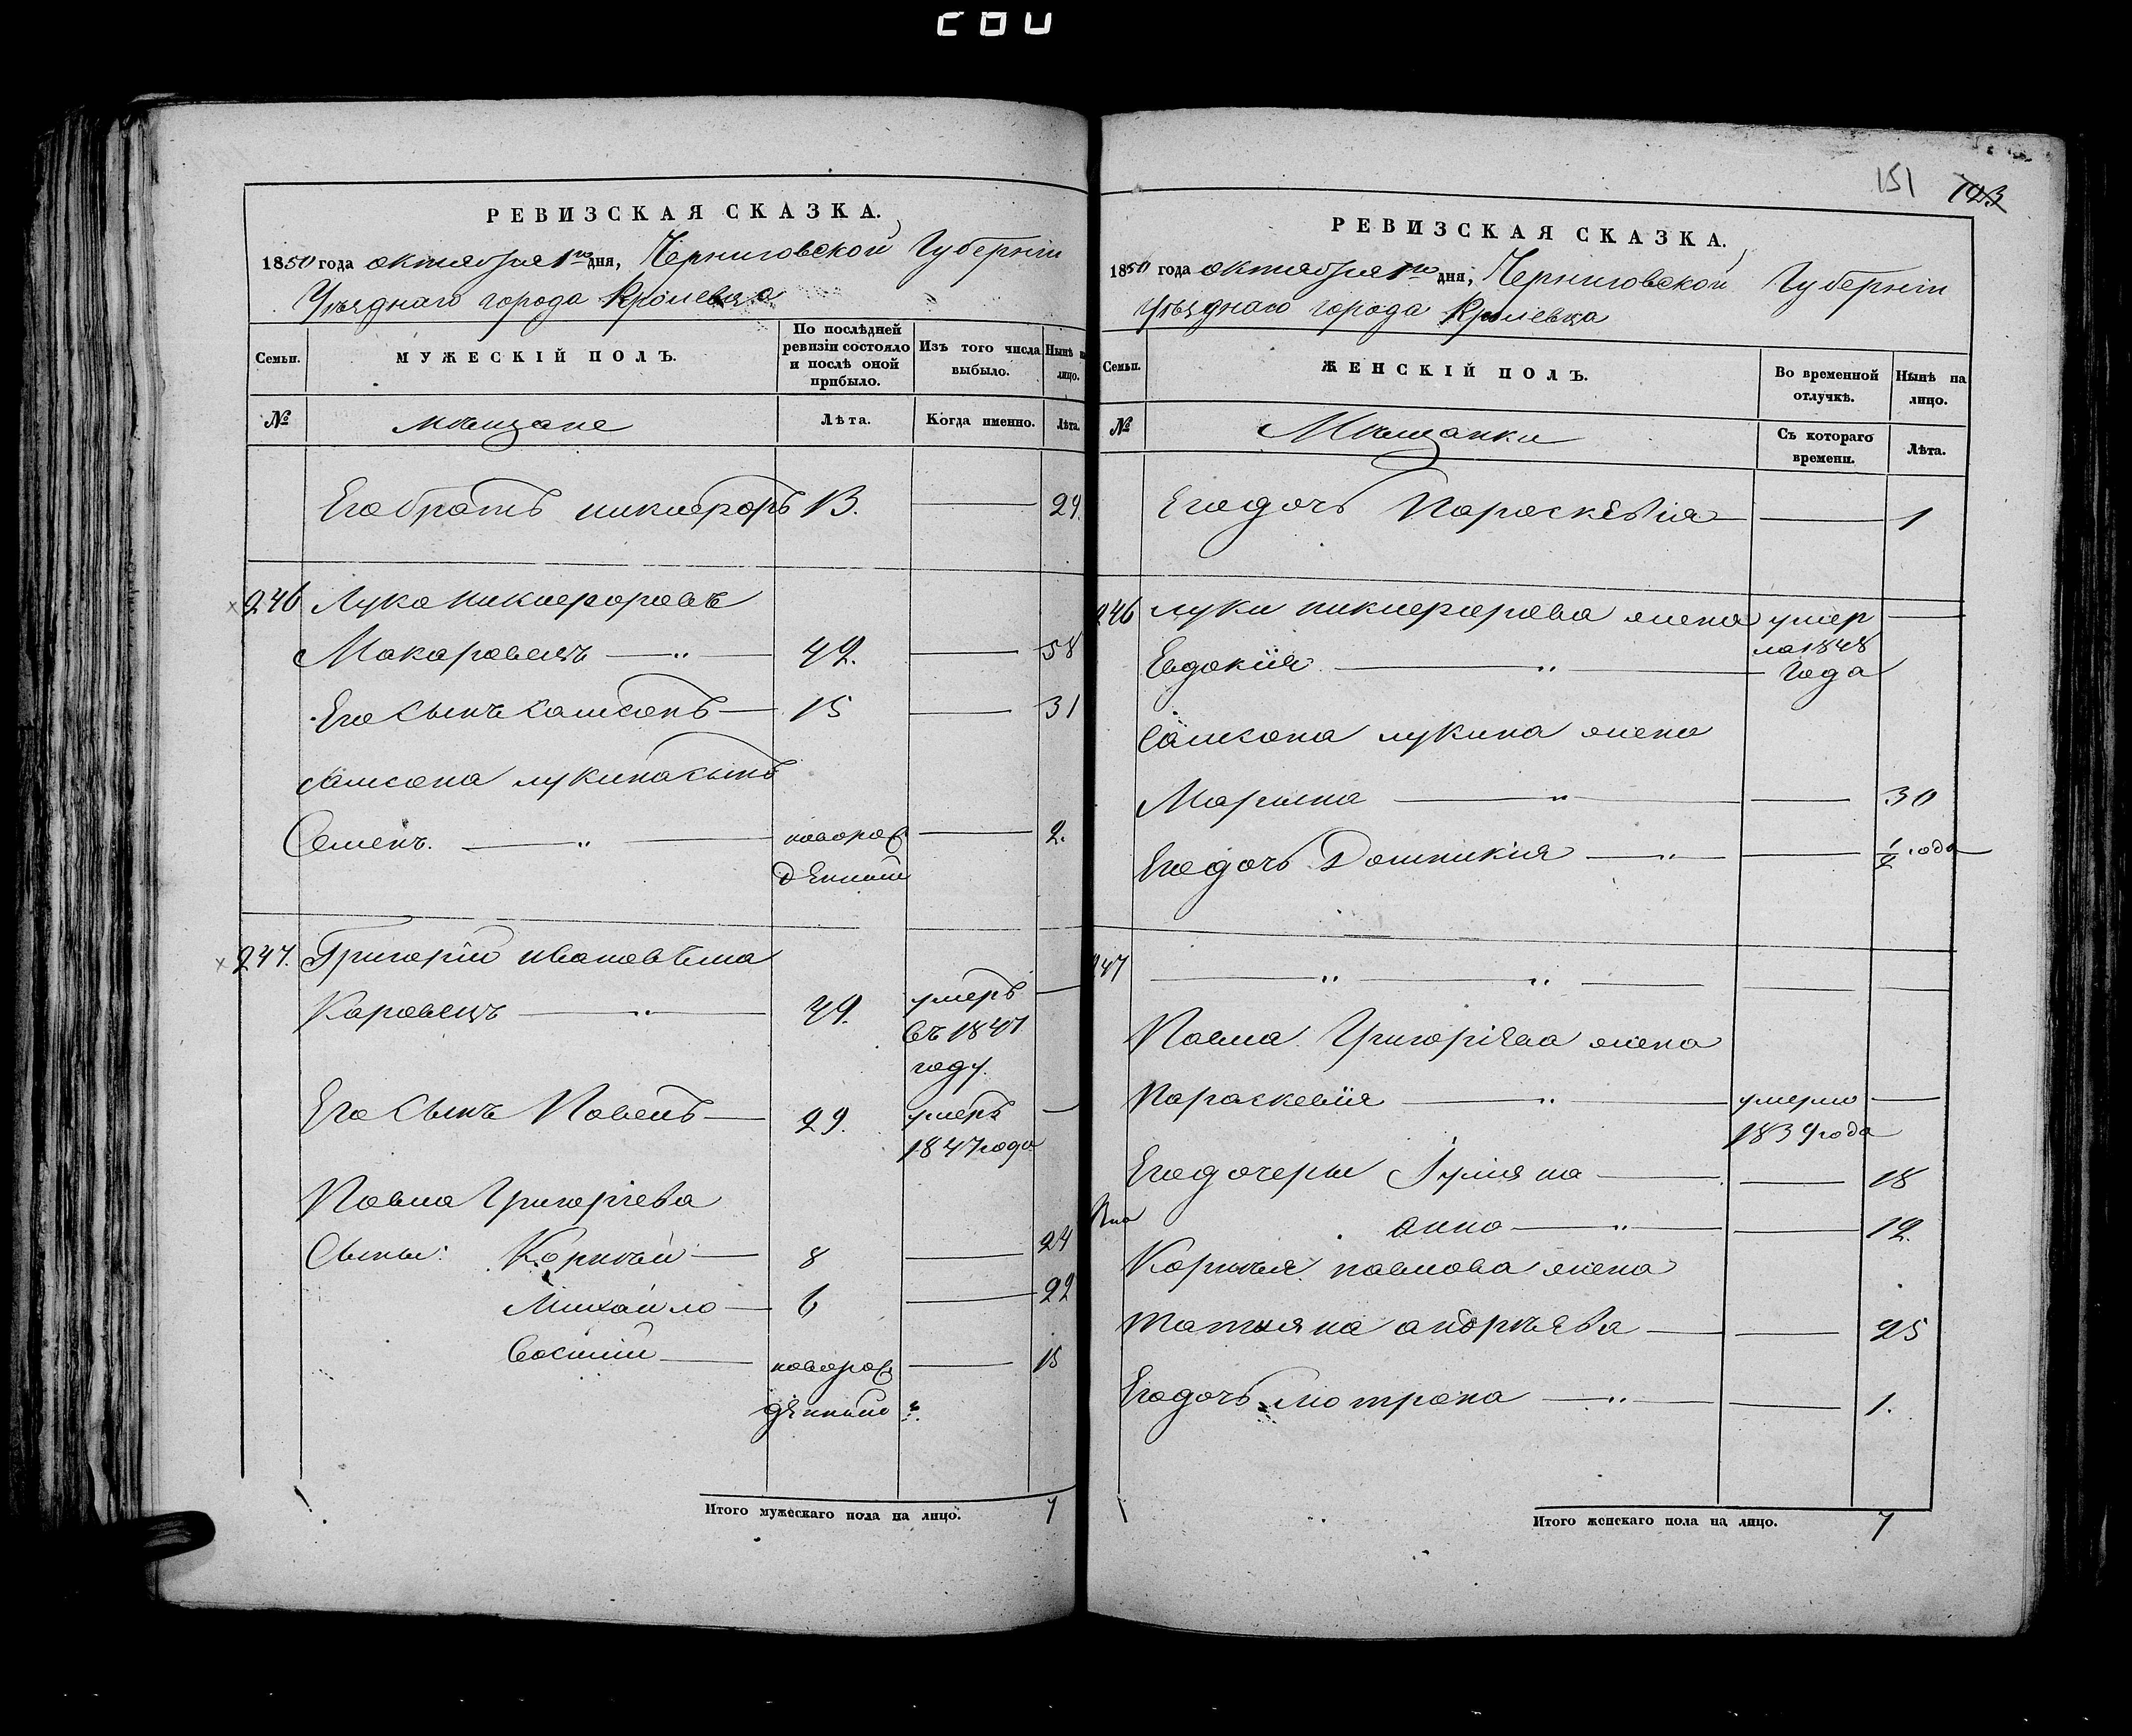 151 123
РЕВИЗСКАЯ СКАЗКА.
1850 года октября 1го дня, Черниговской Губерніи
Уѣзднаго города Кролевца
Семьи. МУЖЕСКІЙ ПОЛЪ. По послѣдней ревизіи состояло и послѣ оной прибыло. Изъ того числа выбыло. Нынѣ на лицо.
№ мѣщане Лѣта. Когда именно. Лѣта.
Его братъ никифоръ 13. — 29.
246 Лука никифоровъ
Макаровецъ — „ — 42. — 58
Его Сынъ Самсонъ — 15 — 31
Самсона лукина сынъ
Семенъ. — „ — новорож — 2.
денный
247. Григорій ивановъ ма
Каровецъ — „ — 49. умеръ —
въ 1847
году.
Его Сынъ Павелъ — 29. умеръ —
1847 года
Павла Григоріева
Сыны: Корнѣй — 8 — 24
Михайло — 6 — 22
Василій — новорож — 15
денный
Итого мужескаго пола на лицо. 7
РЕВИЗСКАЯ СКАЗКА.
1850 года октября 1го дня, Черниговской Губерніи
Уѣзднаго города Кролевца
Семьи. ЖЕНСКІЙ ПОЛЪ. Во временной отлучкѣ. Нынѣ на лицо.
№ Мѣщанки Съ котораго времени. Лѣта.
Его дочь Параскевія — — 1
246 луки никифорова жена умер —
Евдокія — „ — ла 1848
года
Самсона лукина жена
Марина — „ — — 30
Его дочь Домникія — „ — — 1/2 года
247 — „ — „ — — —
Павла Григоріева жена
Параскевія — „ — умерла —
1839 года
Его дочери Іуліяна — — 18
анна — „ — — 12.
Корнѣя павлова жена
татіяна андрѣева — — 25
Его дочь мотрона — „ — — 1.
Итого женскаго пола на лицо. 7